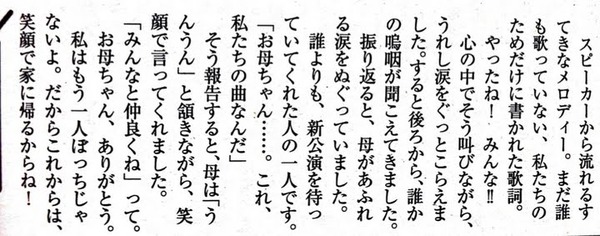 スピーカーから流れるす
てきなメロディー。まだ誰
も歌っていない、私たちの
ためだけに書かれた歌詞。
やったね！　みんな!!
心の中でそう叫びながら、
うれし涙をぐっとこらえま
した。すると後ろから、誰か
の嗚咽が聞こえてきました。
振り返ると、母があふれ
る涙をぬぐっていました。
誰よりも、新公演を待っ
ていてくれた人の一人です。
「お母ちゃん……。これ、
私たちの曲なんだ」
そう報告すると、母は「う
んうん」と頷きながら、笑
顔で言ってくれました。
「みんなと仲良くね」って。
お母ちゃん、ありがとう。
私はもう一人ぼっちじゃ
ないよ。だからこれからは、
笑顔で家に帰るからね！